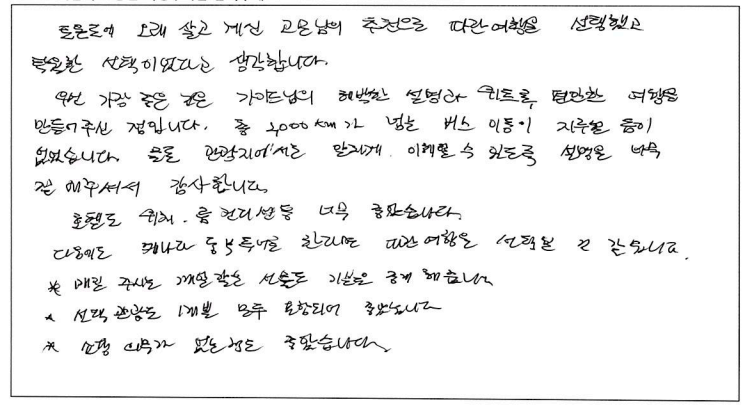 토론토에 오래 살고 계신 고모님의 추천으로 파란여행을 선택했고
탁월한 선택이었다고 생각합니다.
우선 가장 좋은 점은 가이드님의 해박한 설명과 위트로, 편안한 여행을
만들어주신 점입니다. 총 2,000km가 넘는 버스 이동이 지루할 틈이
없었습니다. 물론 관광지에서도 알차게 이해할 수 있도록 설명을 너무
잘 해주셔서 감사합니다.
호텔도 위치, 룸 컨디션 등 너무 좋았습니다.
다음에도 캐나다 동부투어를 한다면 파란여행을 선택할 것 같습니다.
* 매일 주시는 깨알같은 선물도 기분을 좋게 해줍니다
* 선택관광도 1개뿐 모두 포함되어 좋았습니다
* 쇼핑 의무가 없는점도 좋았습니다.